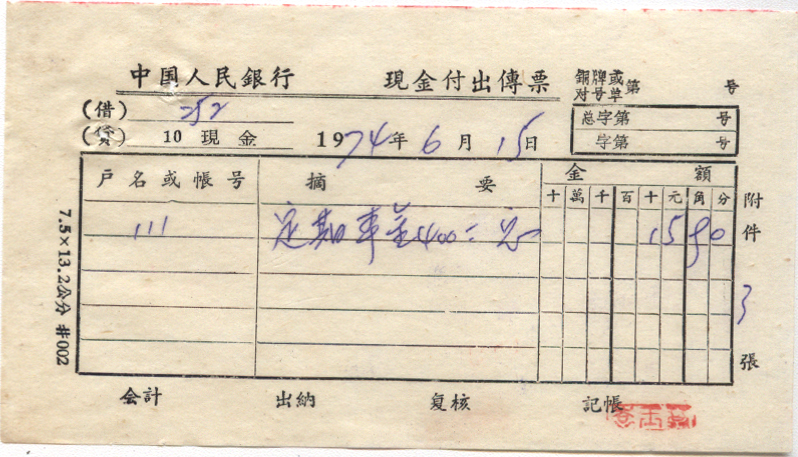 中国人民銀行 現金付出傳票 銅牌或对号单第 号
(借) 252 总字第 号
(貸) 10 現金 1974年6月15日 字第 号
戶名或帳号 摘要 金額
十萬千百十元角分
111 定期 400 1590
附件3張
7.5×13.2公分 #002
会計 出納 复核 記帳